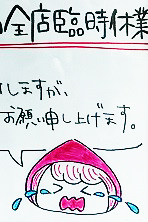 全店臨時休業
しますが、
お願い申し上げます。